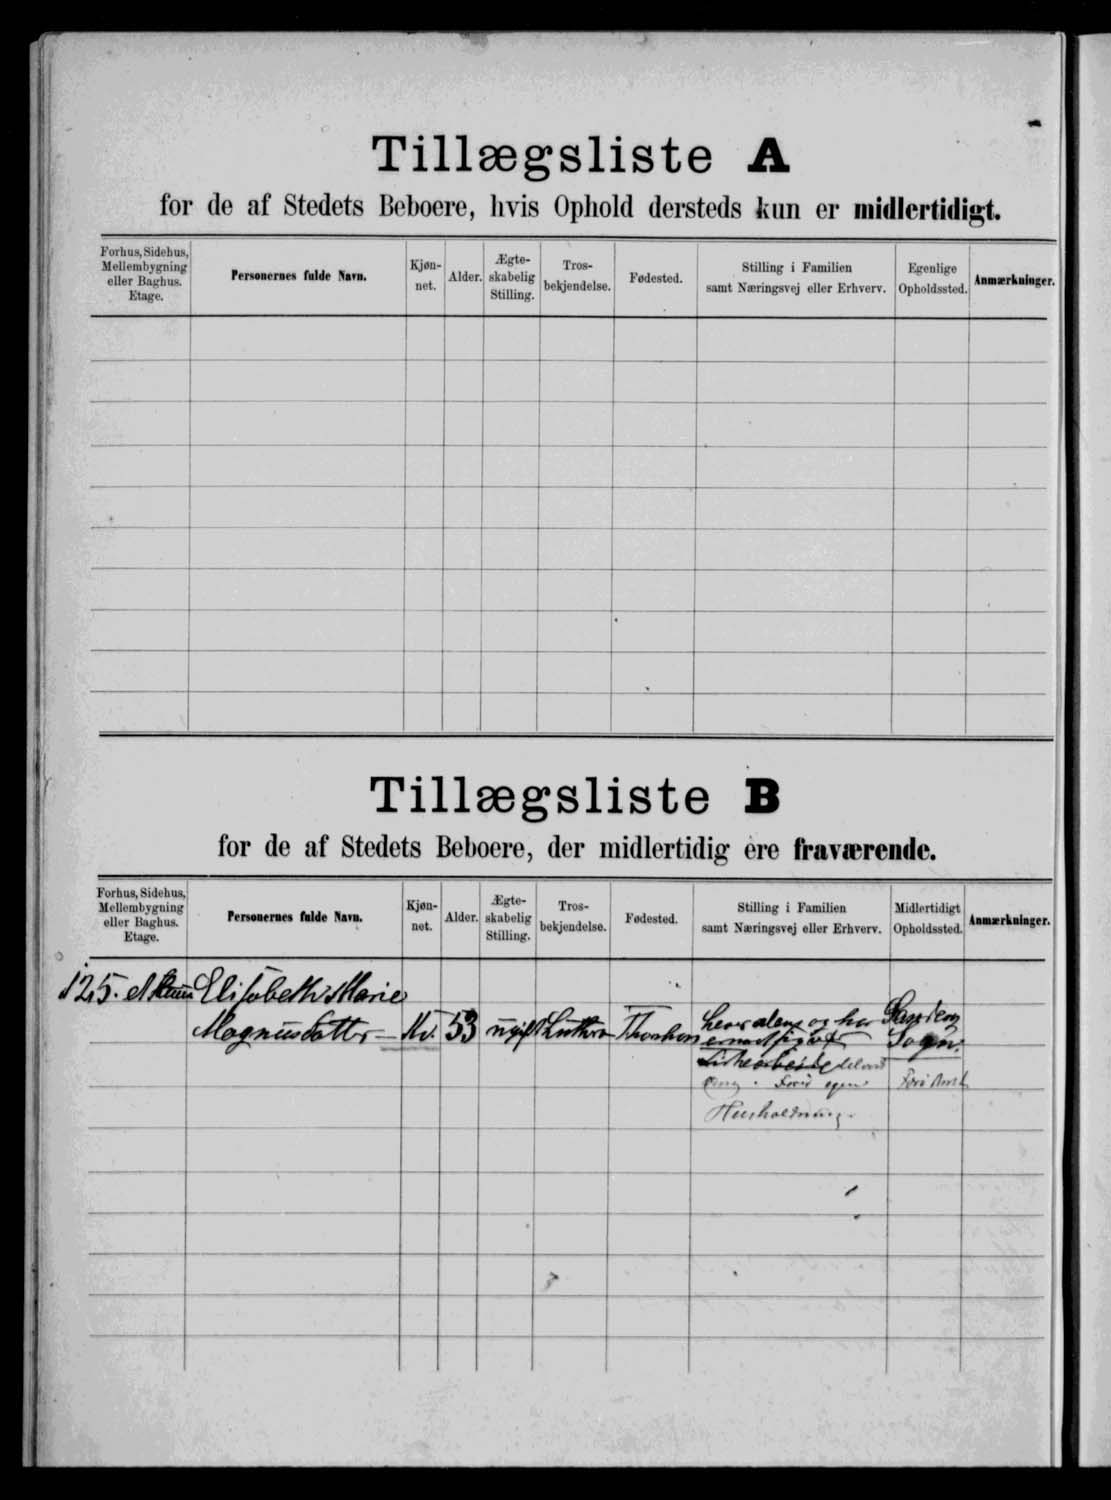 Tillægsliste A
for de af Stedets Beboere, hvis Ophold dersteds kun er midlertidigt.
Forhus, Sidehus, Mellembygning eller Baghus. Etage.
Personernes fulde Navn.
Kjøn-net.
Alder.
Ægte-skabelig Stilling.
Tros-bekjendelse.
Fødested.
Stilling i Familien samt Næringsvej eller Erhverv.
Egenlige Opholdssted.
Anmærkninger.
Tillægsliste B
for de af Stedets Beboere, der midlertidig ere fraværende.
Forhus, Sidehus, Mellembygning eller Baghus. Etage.
Personernes fulde Navn.
Kjøn-net.
Alder.
Ægte-skabelig Stilling.
Tros-bekjendelse.
Fødested.
Stilling i Familien samt Næringsvej eller Erhverv.
Midlertidigt Opholdssted.
Anmærkninger.
125. Elisabeth Marie
Magnusdatter — Kv. 53 ugift Luthera Thorshavn lever alene og har
Sogn.
egen
Husholdning.